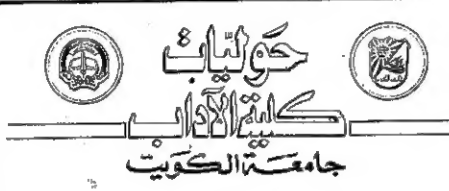 حوليات
كلية الآداب
جامعة الكويت